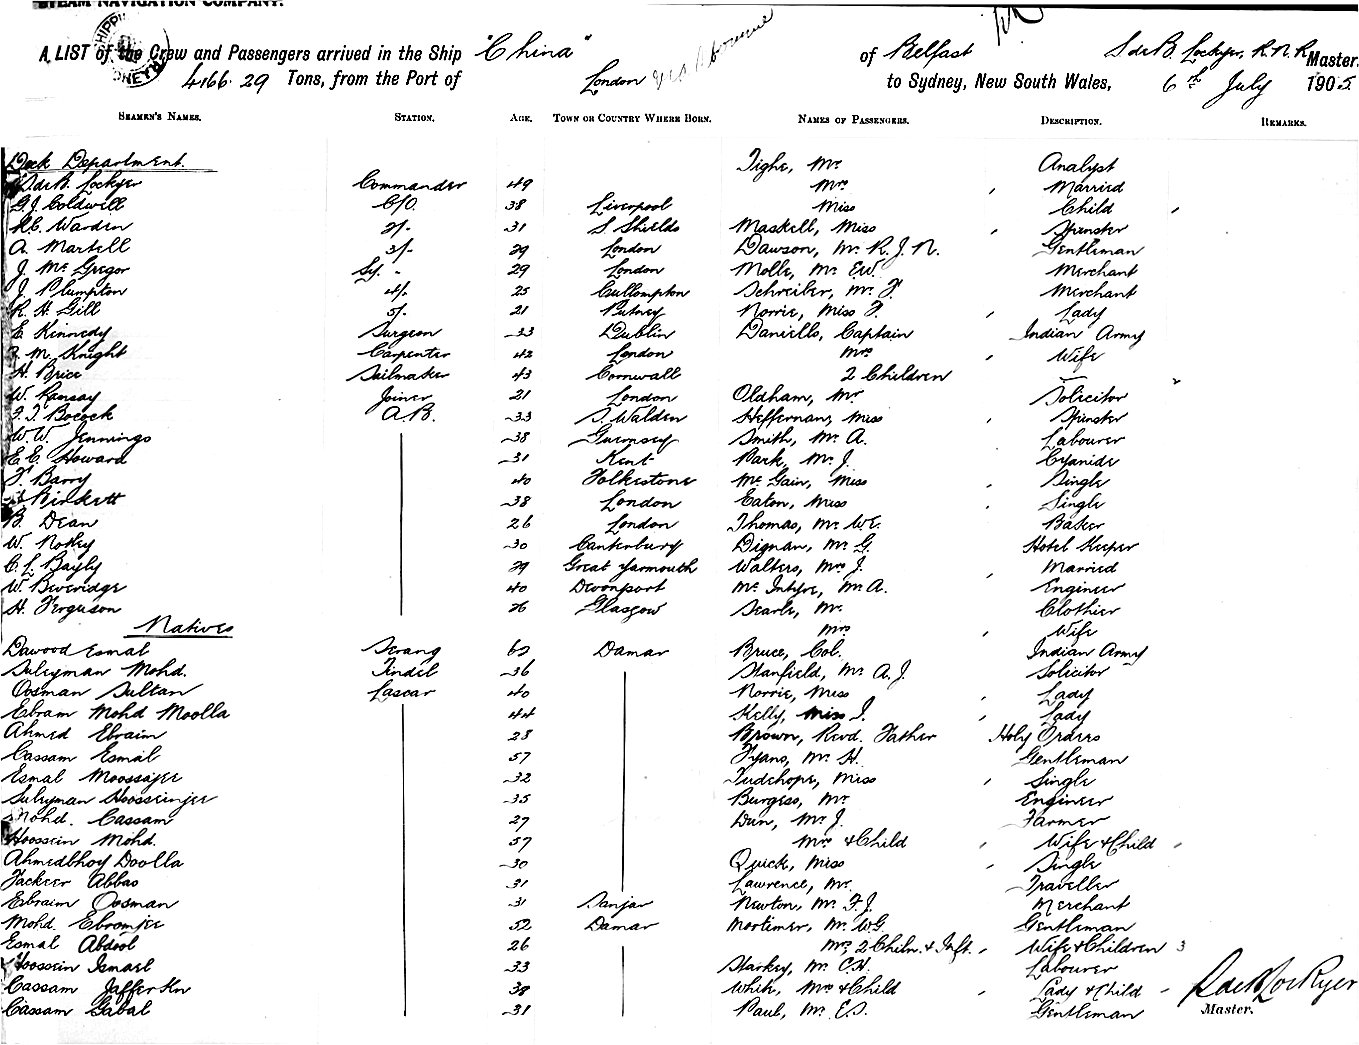 STEAM NAVIGATION COMPANY.
SHIPPING
SYDNEY
A LIST of the Crew and Passengers arrived in the Ship "China" of Belfast S de B. Lockyer, R.N.R. Master.
4166.29 Tons, from the Port of London via Melbourne to Sydney, New South Wales, 6th July 1905.
SEAMEN'S NAMES. STATION. AGE. TOWN OR COUNTRY WHERE BORN. NAMES OF PASSENGERS. DESCRIPTION. REMARKS.
Deck Department. Tighe, Mr Analyst
S de B. Lockyer Commander 49 Mrs Married
G. J. Coldwell C/O. 38 Liverpool Miss Child
Warden 2/- 31 S. Shields Maskell, Miss Spinster
A. Martell 3/- 29 London Dawson, Mr. R. J. N. Gentleman
J. McGregor Sy. - 29 London Molle, Mr. E.W. Merchant
J. Plumpton 4/- 25 Cullompton Schreiber, Mr. F. Merchant
R. H. Gill 5/- 21 Putney Norrie, Miss F. Lady
E Kennedy Surgeon 33 Dublin Daniells, Captain Indian Army
M. Knight Carpenter 42 London Mrs Wife
H. Brice Sailmaker 43 Cornwall 2 Children
W. Ramsay Joiner 21 London Oldham, Mr Solicitor
Bocock A.B. 33 S. Walden Heffernan, Miss Spinster
W. W. Jennings 38 Guernsey Smith, Mr A. Labourer
E. E. Howard 31 Kent Park, Mr J. Cyanider
F. Barry 40 Folkestone McGain, Miss Single
Biskett 38 London Eaton, Miss Single
B. Dean 26 London Thomas, Mr W.E. Baker
W. Notley 30 Canterbury Dignan, Mr G. Hotel Keeper
C. L. Bayly 29 Great Yarmouth Walters, Mrs J. Married
W. Beveridge 40 Devonport McIntyre, Mr A. Engineer
H. Ferguson 26 Glasgow Searle, Mr. Clothier
Natives Mrs Wife
Dawood Esmal Serang 62 Damar Bruce, Col. Indian Army
Suleyman Mohd. Tindel 36 Stanfield, Mr A. J. Solicitor
Oosman Sultan Lascar 40 Norrie, Miss Lady
Ebram Mohd Moolla 44 Kelly, Miss I. Lady
Ahmed Ebraim 28 Brown, Revd. Father Holy Orders
Cassam Esmal 57 Fyans, Mr H. Gentleman
Esmal Moossajee 32 Tudehope, Miss Single
Suleyman Hoosseinjee 35 Burgess, Mr Engineer
Mohd. Cassam 27 Dun, Mr J. Farmer
Hoossein Mohd. 57 Mrs & Child Wife & Child
Ahmedbhoy Doolla 30 Quick, Miss Single
Fackeer Abbas 31 Lawrence, Mr. Traveller
Ebraim Oosman 31 Sanjar Newton, Mr. F. J. Merchant
Mohd Ebromjee 52 Damar Mortimer, Mr. W.G. Gentleman
Esmal Abdool 26 Mrs 2 Chiln. & Inft. Wife & Children 3
Hoossein Ismael 33 Starkey, Mr. C.H. Labourer
Cassam Jaffer Kn 38 White, Mrs & Child Lady & Child
Cassam Gabal 31 Paul, Mr. E.S. Gentleman
S de B Lockyer
Master.